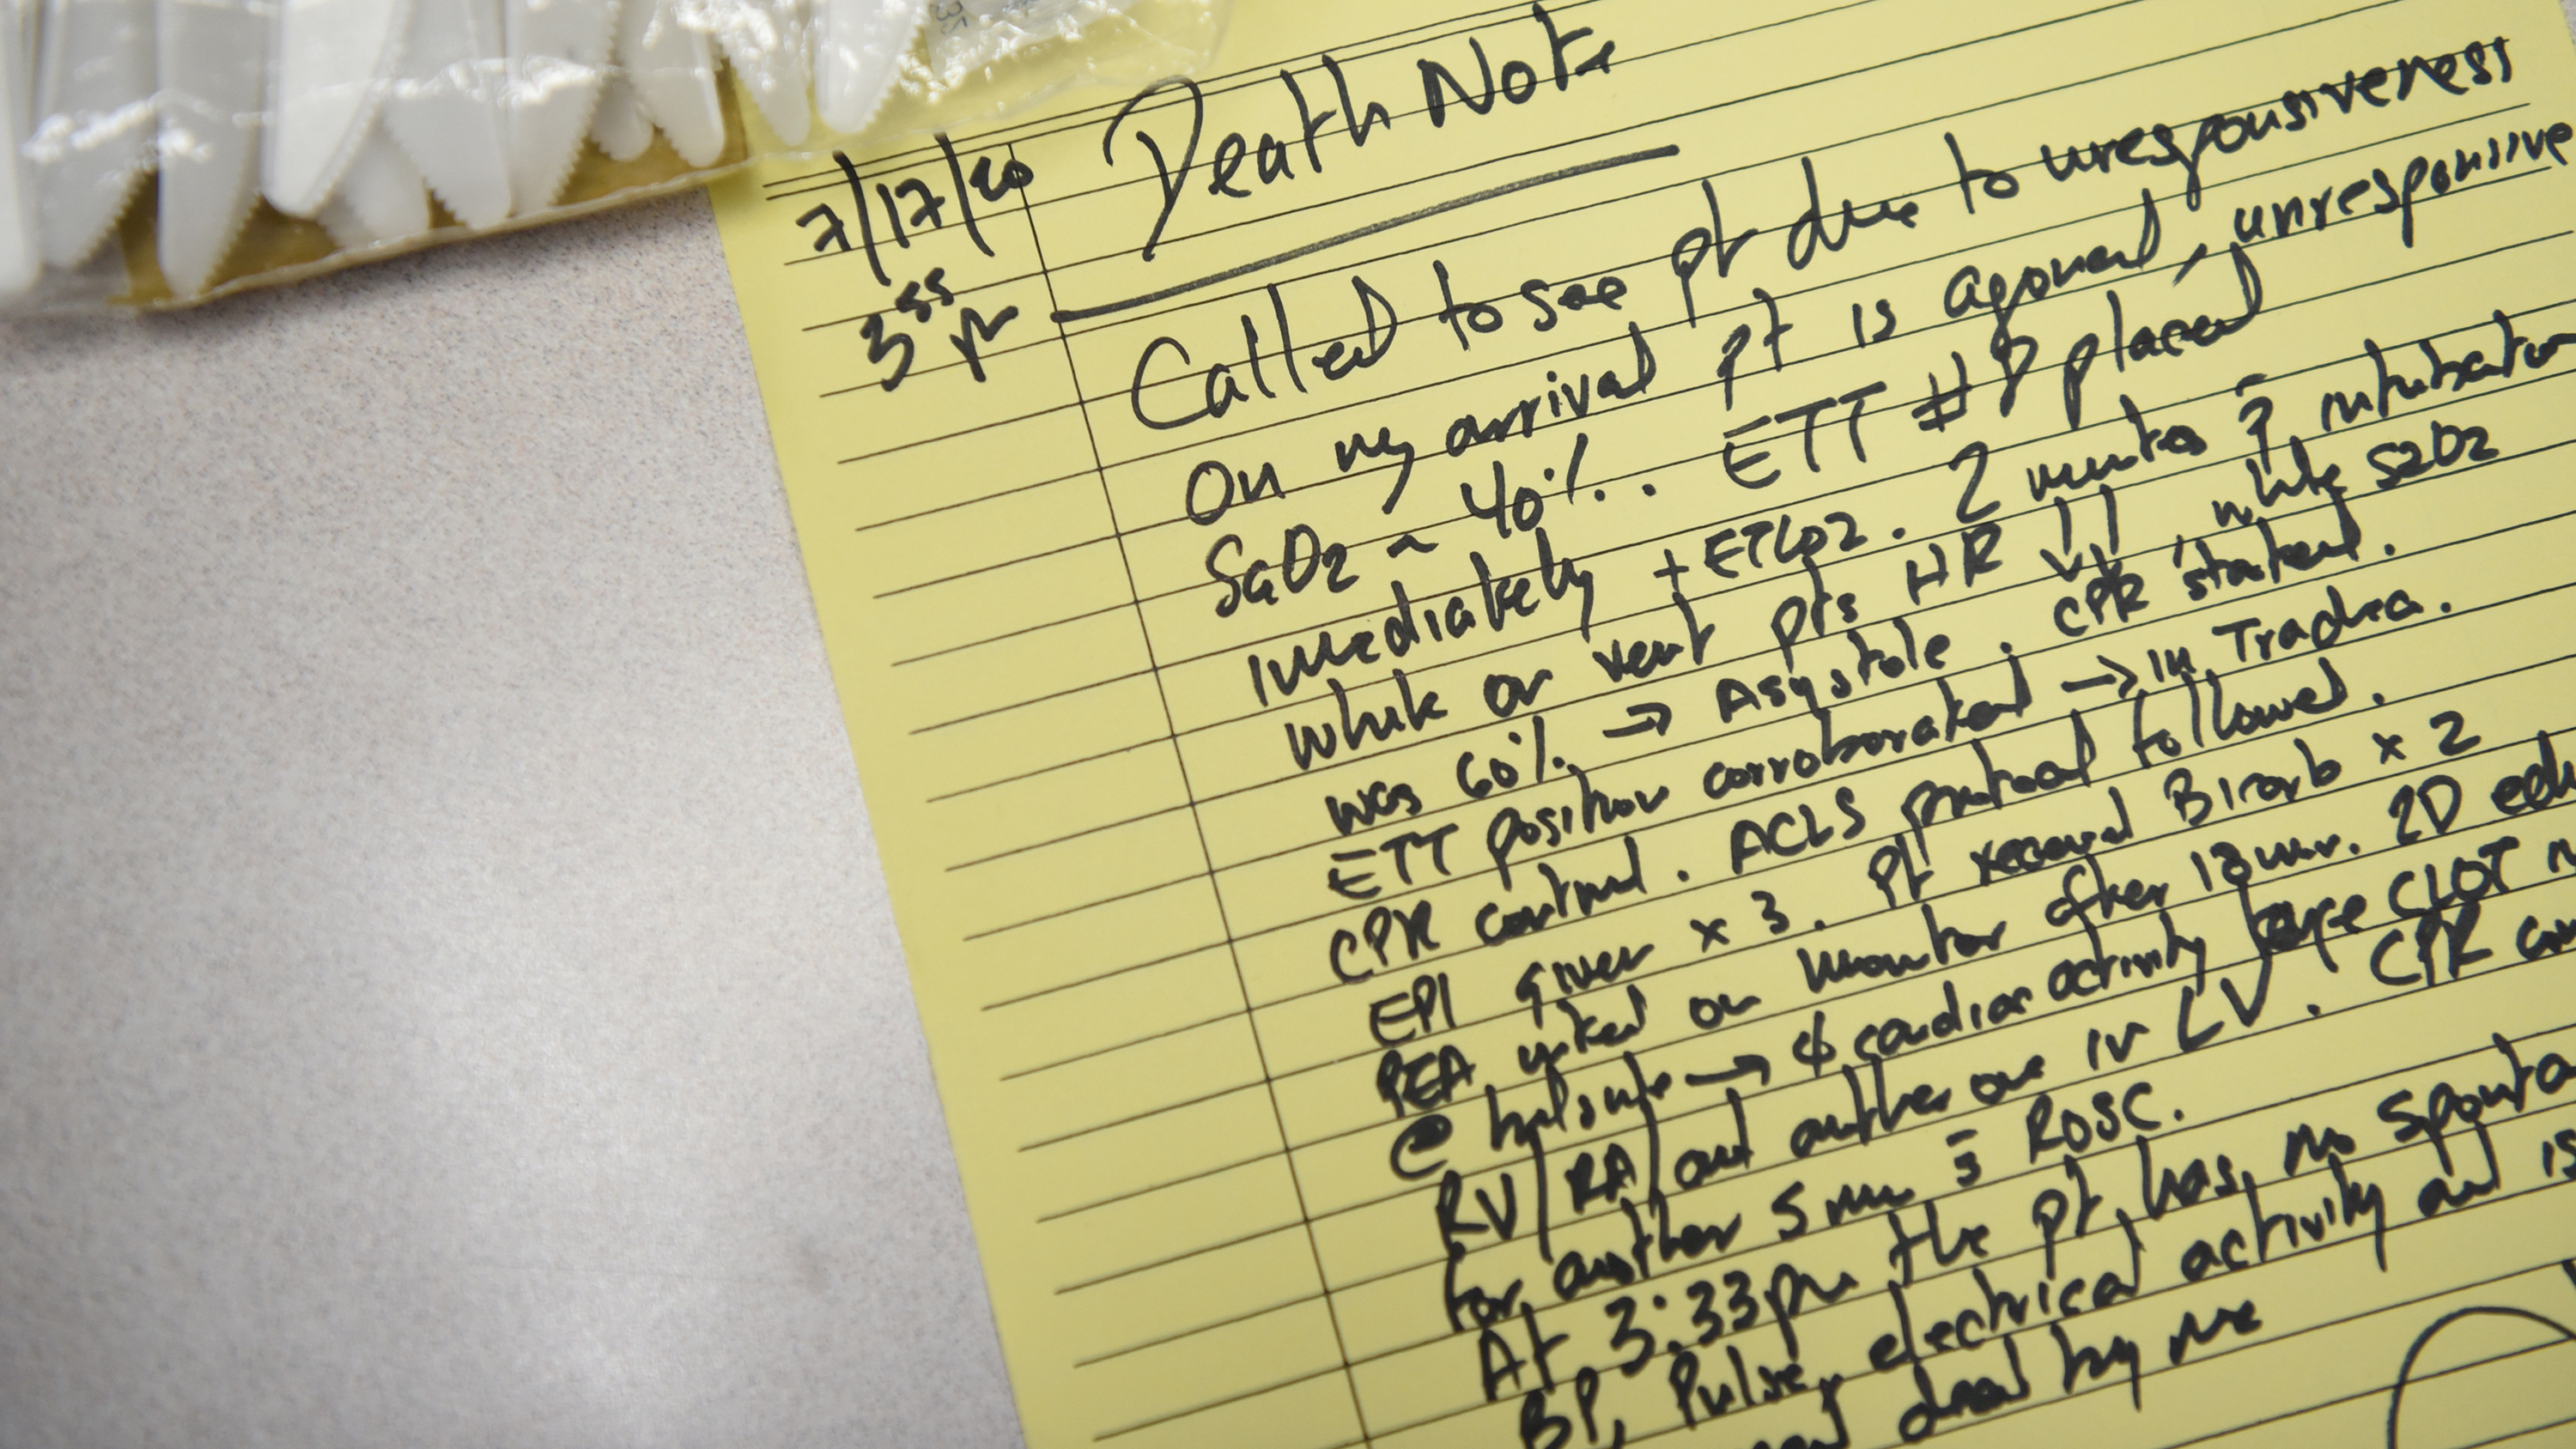 Death Note
7/17/20
3 55 pm
Called to see pt due to unresponsiveness
On my arrival pt is agonal, unresponsive
SaO2 ~ 40%. . ETT #8 placed
immediately + ETCO2. 2 minutes p̄ intubation
while on vent pts HR ↓↓ while SaO2
was 60% → Asystole. CPR started.
ETT position corroborated → in Trachea.
CPR continued. ACLS protocol followed.
EPI given x 3. Pt received Bicarb x 2
PEA noted on monitor after 13 min. 2D
@ → ∅ cardiac activity large CLOT
RV/RA/ and another one in LV. CPR
for another 5 min s̄ ROSC.
At 3:33pm the pt has no
BP, Pulse, electrical activity and is
dead by me